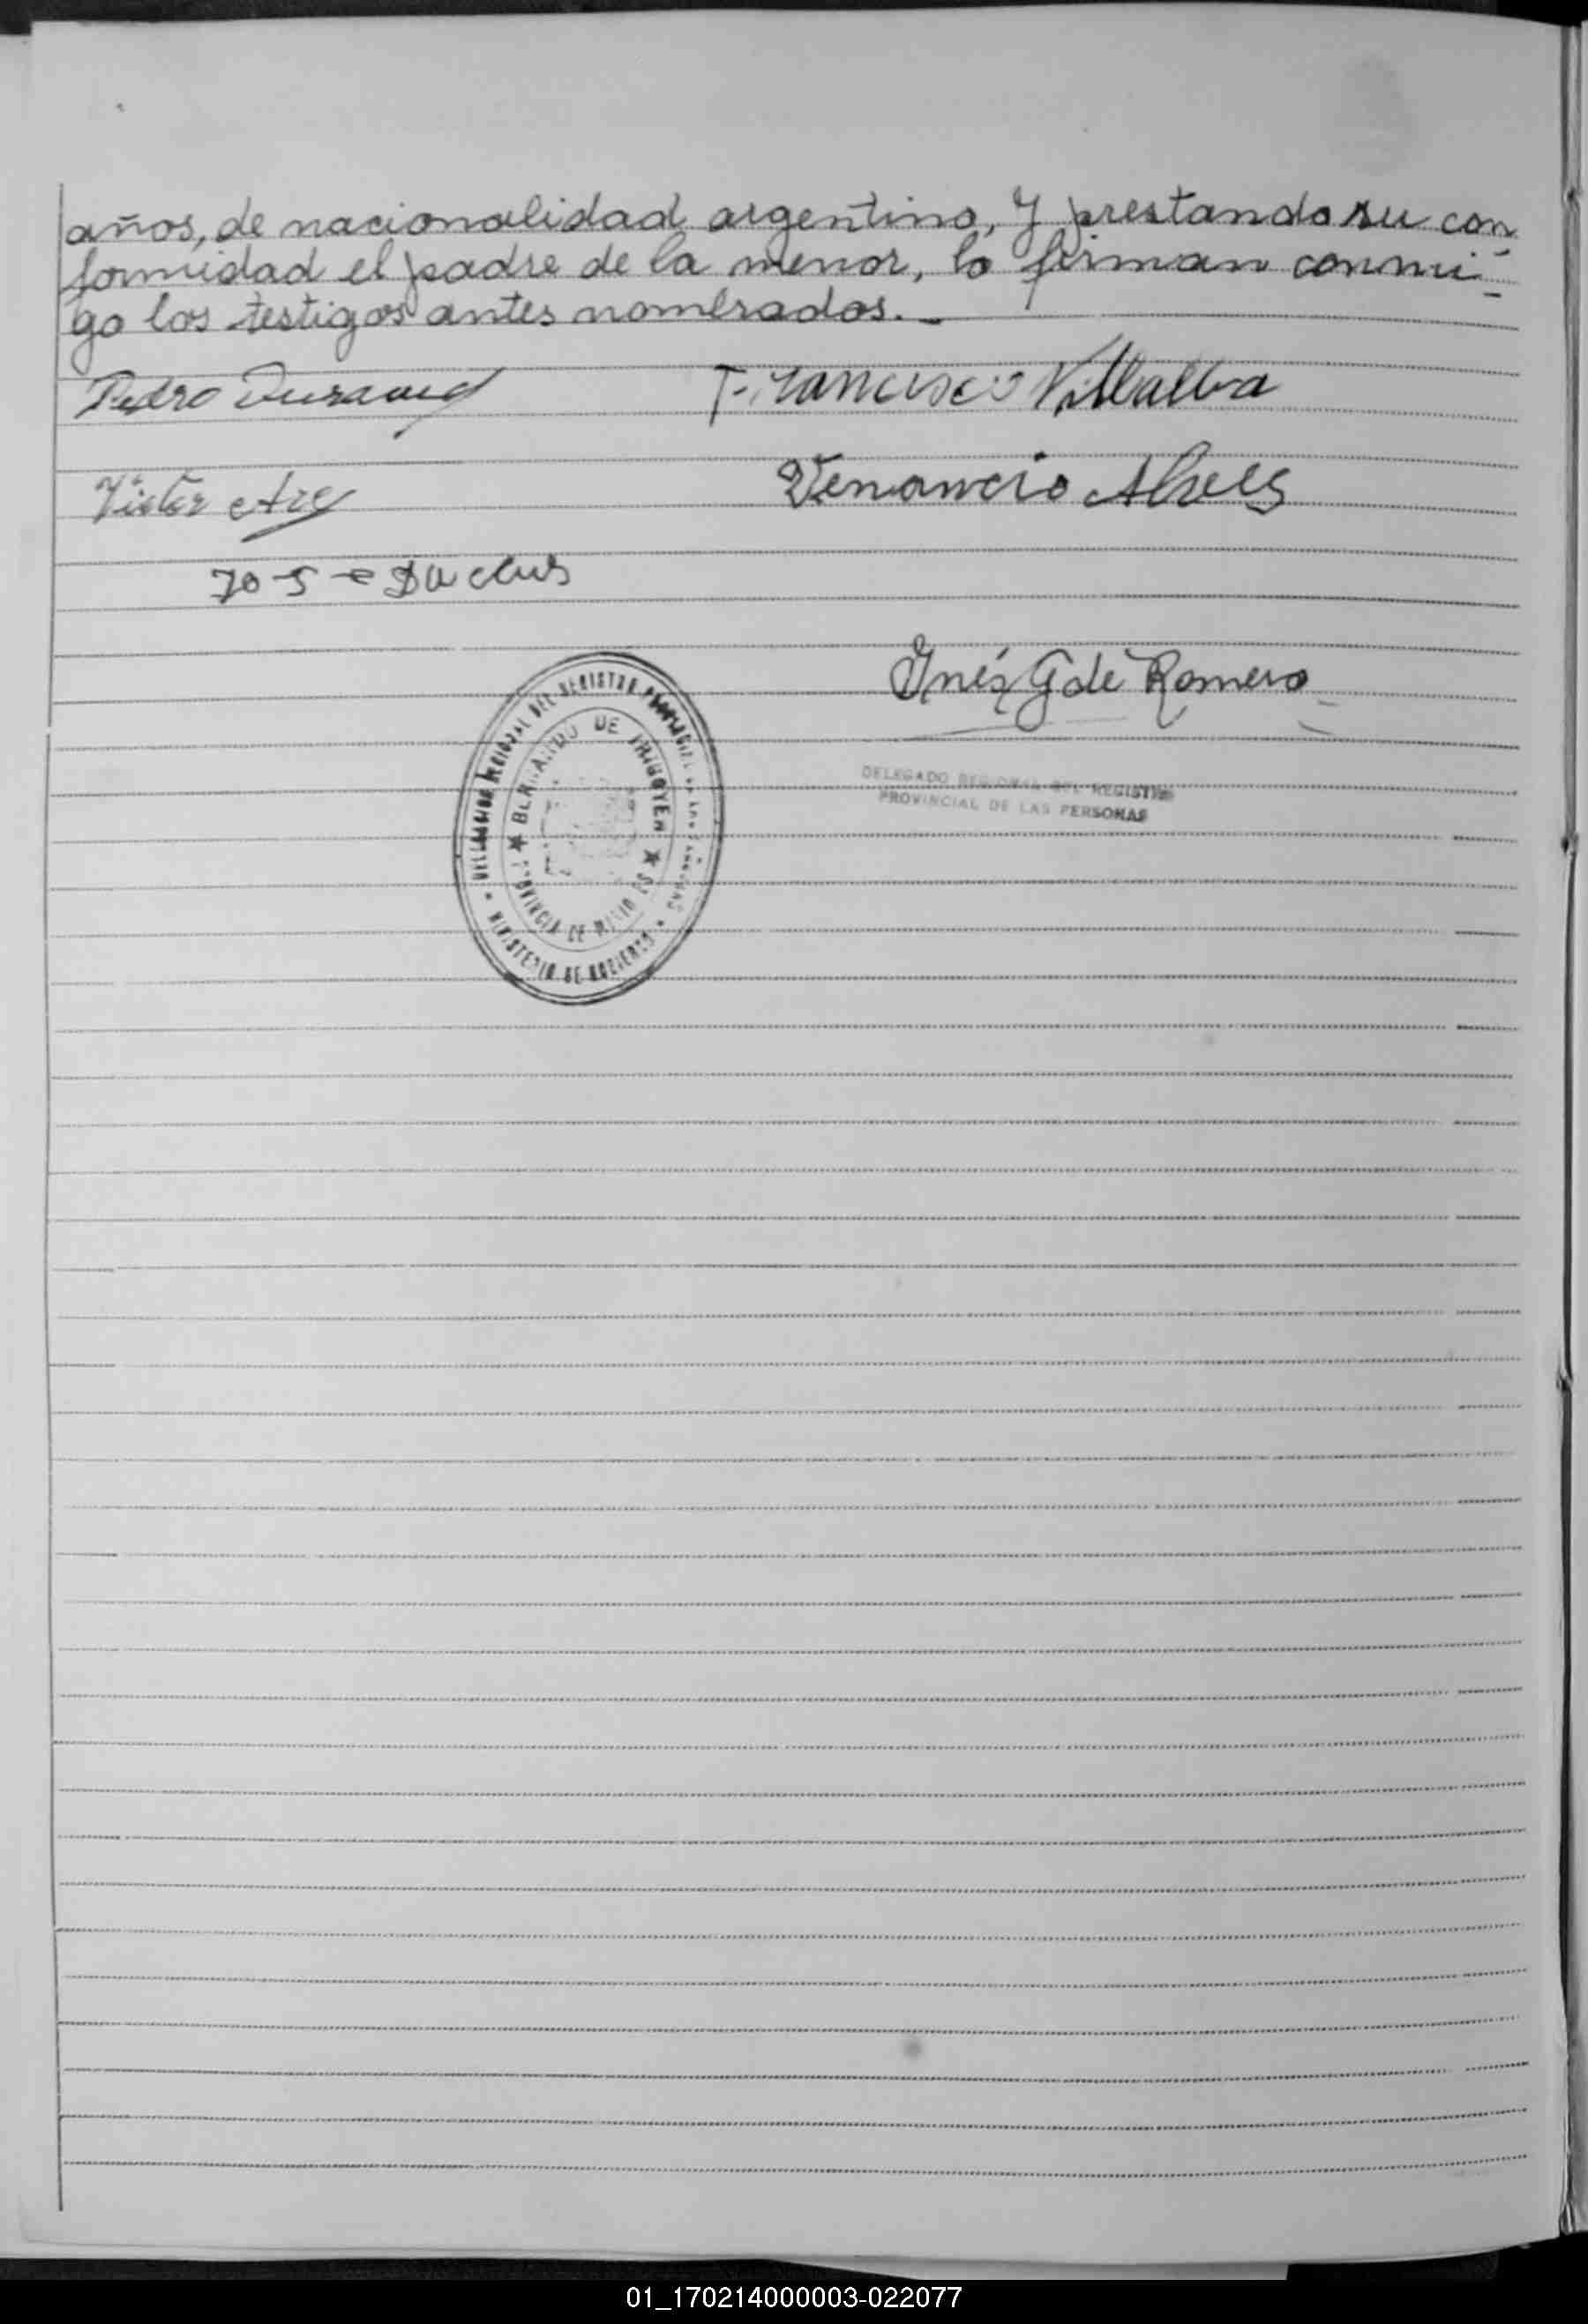 años, de nacionalidad argentino, y prestando su con
formidad el padre de la menor, lo firman conmi-
go los testigos antes nombrados.-
Pedro
Francisco Villalba
Victor
Venancio Alves
Jose
Inés G de Romero
DELEGACION REGIONAL DEL REGISTRO PROVINCIAL DE LAS PERSONAS
★ BERNARDO DE IRIGOYEN ★
PROVINCIA DE MISIONES
MINISTERIO DE GOBIERNO
DELEGADO REGIONAL DEL REGISTRO
PROVINCIAL DE LAS PERSONAS
01_170214000003-022077